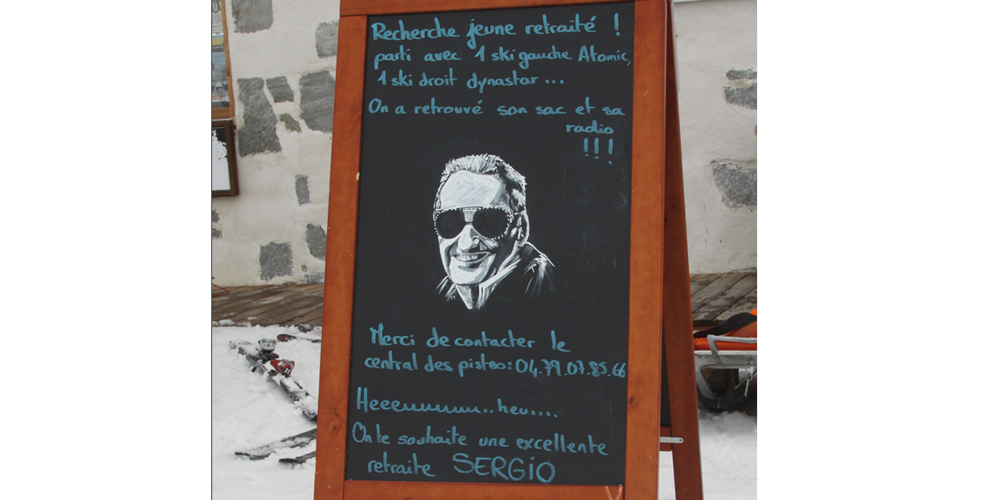 Recherche jeune retraité !
parti avec 1 ski gauche Atomic,
1 ski droit dynastar...
On a retrouvé son sac et sa
radio
!!!
Merci de contacter le
central des pistes: 04.79.07.85.66
Heeeuuuuuu..heu....
On te souhaite une excellente
retraite SERGIO